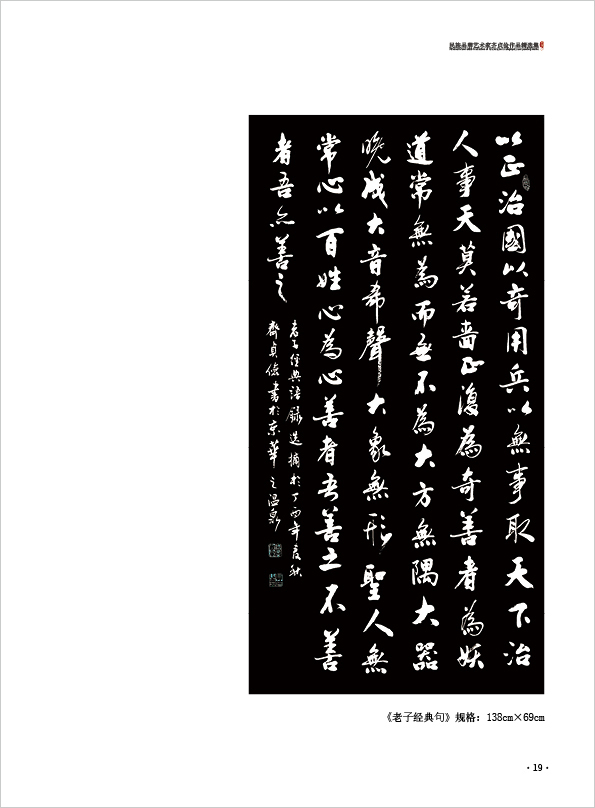 以正治國以奇用兵以無事取天下治
人事天莫若啬正復為奇善者為妖
道常無為而無不為大方無隅大器
晚成大音希聲大象無形聖人無
常心以百姓心為心善者吾善之不善
者吾亦善之
老子經典語錄選摘於丁酉年度秋
齊貞儉書於京華之溫泉
《老子经典句》规格：138cm×69cm
·19·